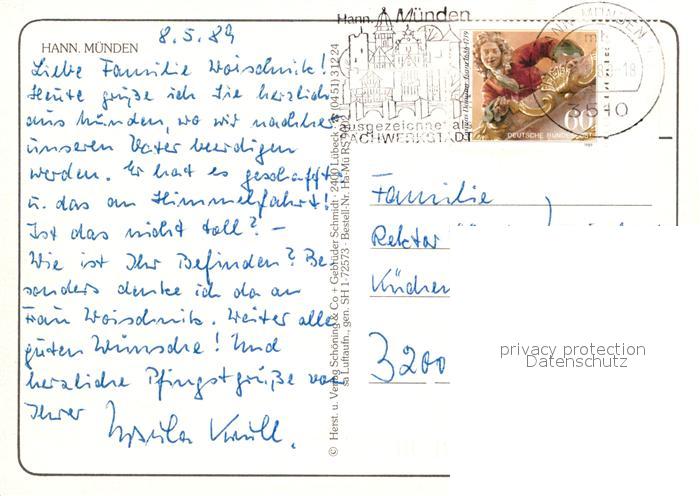 8.5.89
HANN. MÜNDEN
Liebe Familie Woischnik!
Heute grüße ich Sie herzlich
aus Münden, wo wir nachher
unseren Vater beerdigen
werden. Er hat es geschafft
u. das an Himmelfahrt!
Ist das nicht toll? –
Wie ist Ihr Befinden? Be-
sonders denke ich da an
Frau Woischnik. Weiter alle
guten Wünsche! Und
herzliche Pfingstgrüße von
Ihrer
Ursula Krull.
© Herst. u. Verlag Schöning & Co + Gebrüder Schmidt · 2400 Lübeck · ☎ (0451) 31224
sa Luftaufn., gen. SH 1-72573 · Bestell-Nr. Ha-Mü RS 9002
Hann. Münden
ausgezeichnet als
FACHWERKSTADT
60
DEUTSCHE BUNDESPOST
1989
MÜNDEN
-18
3510
Familie
Rektor
3200
privacy protection
Datenschutz